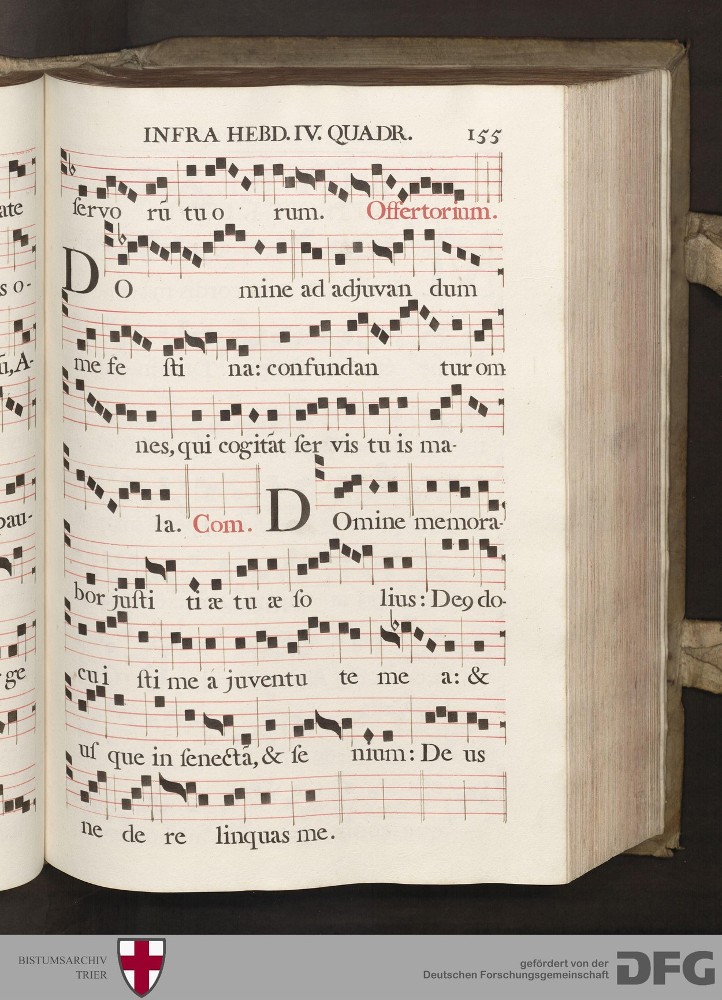 INFRA HEBD. IV. QUADR. 155
ſervo rũ tu o rum. Offertorium.
DO mine ad adjuvan dum
me fe ſti na: confundan tur om
nes, qui cogitãt ſer vis tu is ma-
la. Com. DOmine memora-
bor juſti ti æ tu æ ſo lius: Deꝰ do-
cui ſti me á juventu te me a: &
uſ que in ſenectã, & ſe nium: De us
ne de re linquas me.
ate
s o-
ũ, A-
pau-
ge
BISTUMSARCHIV
TRIER
gefördert von der
Deutschen Forschungsgemeinschaft
DFG